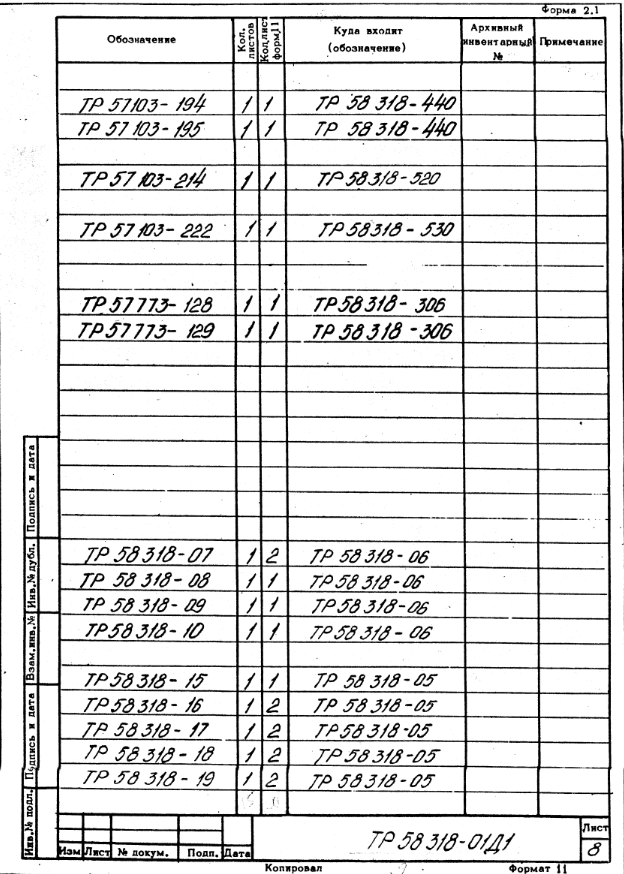 Форма 2.1
Обозначение Кол. листов Кол.лист форм.11 Куда входит (обозначение) Архивный инвентарный № Примечание
ТР 57103-194 1 1 ТР 58 318-440
ТР 57103-195 1 1 ТР 58 318-440
ТР 57103-214 1 1 ТР 58318-520
ТР 57103-222 1 1 ТР 58318-530
ТР 57773-128 1 1 ТР 58318-306
ТР 57773-129 1 1 ТР 58318-306
ТР 58318-07 1 2 ТР 58318-06
ТР 58318-08 1 1 ТР 58318-06
ТР 58318-09 1 1 ТР 58318-06
ТР 58318-10 1 1 ТР 58318-06
ТР 58318-15 1 1 ТР 58318-05
ТР 58318-16 1 2 ТР 58318-05
ТР 58318-17 1 2 ТР 58318-05
ТР 58318-18 1 2 ТР 58318-05
ТР 58318-19 1 2 ТР 58318-05
Подпись и дата
Инв.№ дубл.
Взам.инв.№
Подпись и дата
Инв.№ подл.
ТР 58318-01Д1
Лист
8
Изм Лист № докум. Подп. Дата
Копировал Формат 11